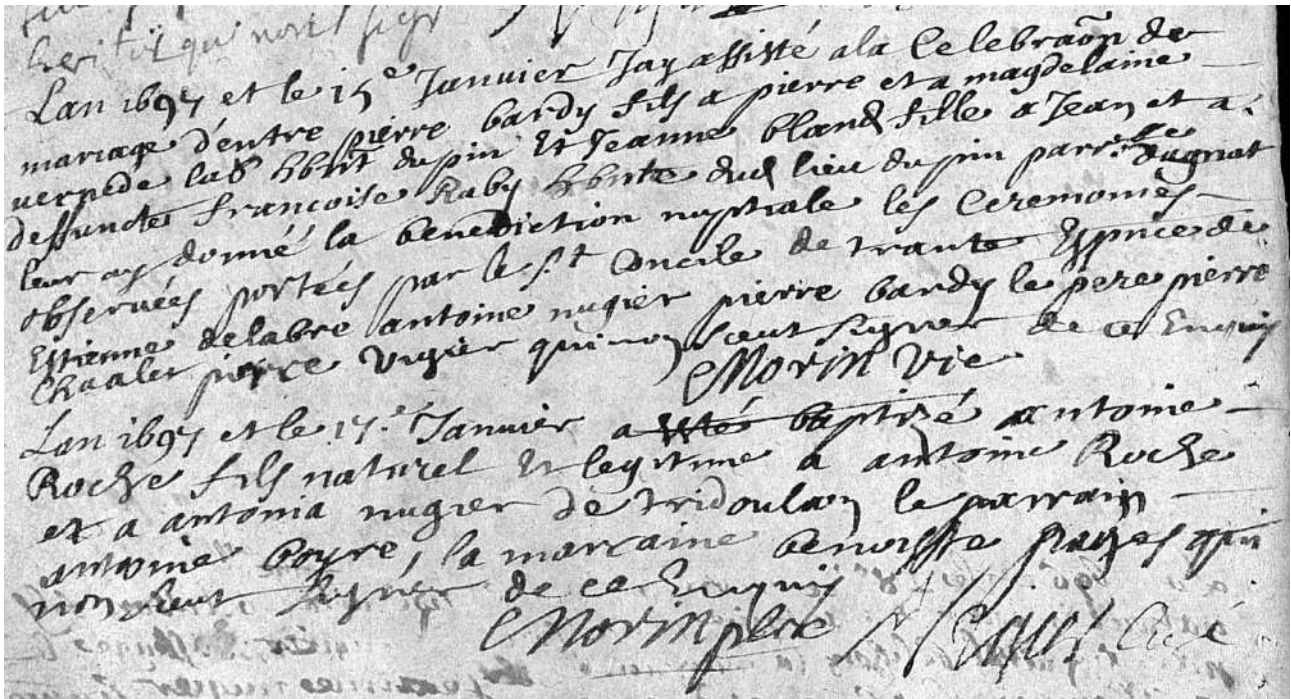 qui nont signé
Lan 1697 et le 15e Janvier Jay assisté a la Celebraon de
mariage dentre pierre bardy fils a pierre et a magdelaine
verpede hbnt du pin Et Jeanne bland fille a Jean et a
deffuncte francoise Raby hbnte dud lieu du pin parr.sse
leur ay donné la benediction nuptiale les Ceremonies
observées portées par le st Concile de trante Espnce de
Estienne delabre antoine nugier pierre bardy le pere pierre
pierre vigier qui non sceut signer de ce Enquis
Morin vic
Lan 1697 et le 17.e Janvier a esté baptizé antoine
Roche fils naturel Et legitime a antoine Roche
et a antonia nugier de tridoulon le parrain
antoine boyre, la marraine benoiste pages qui
non sceut signer de ce Enquis
Morin pbre Curé